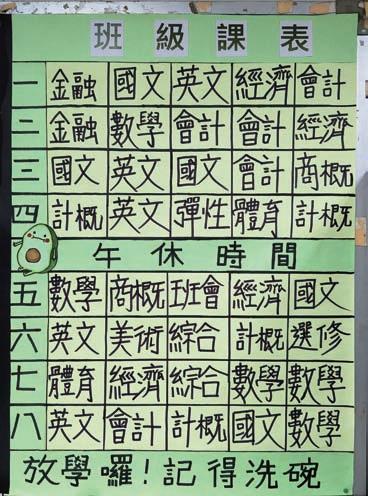 班級課表
一 金融 國文 英文 經濟 會計
二 金融 數學 會計 會計 經濟
三 國文 英文 國文 會計 商概
四 計概 英文 彈性 體育 計概
午休時間
五 數學 商概 班會 經濟 國文
六 英文 美術 綜合 計概 選修
七 體育 經濟 綜合 數學 數學
八 英文 會計 計概 國文 數學
放學囉!記得洗碗